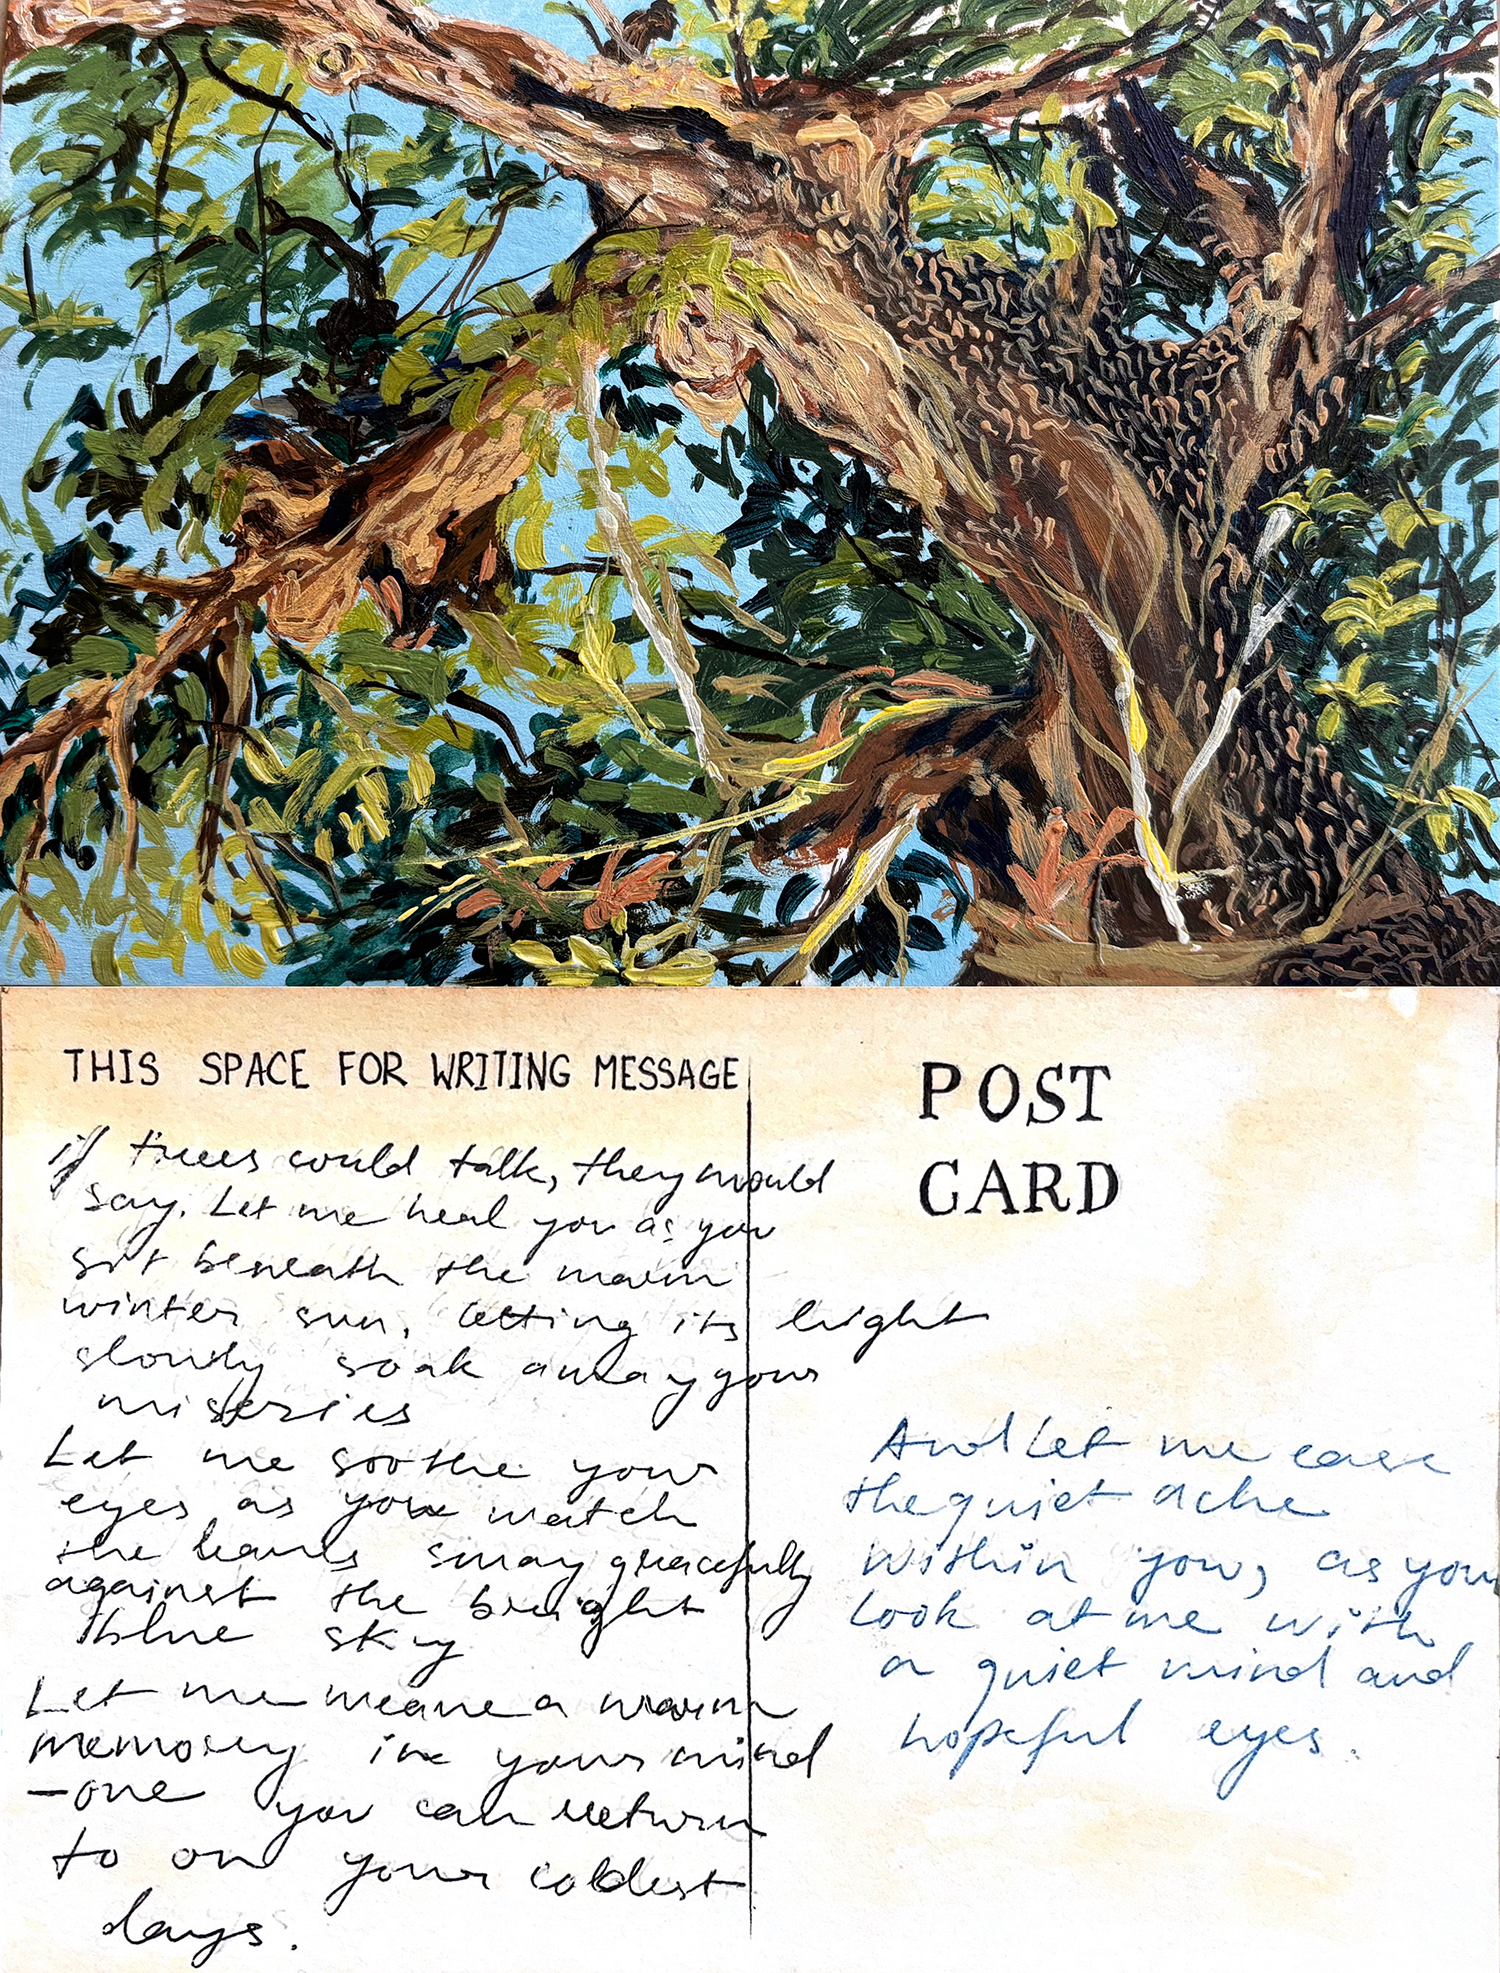 THIS SPACE FOR WRITING MESSAGE
if trees could talk, they would
say. Let me heal you as you
sit beneath the warm
winter sun, letting its light
slowly soak away your
miseries
Let me soothe your
eyes as you watch
the leaves sway gracefully
against the bright
blue sky
Let me weave a warm
memory in your mind
—one you can return
to on your coldest
days.
POST
CARD
And let me ease
the quiet ache
within you, as you
look at me with
a quiet mind and
hopeful eyes.